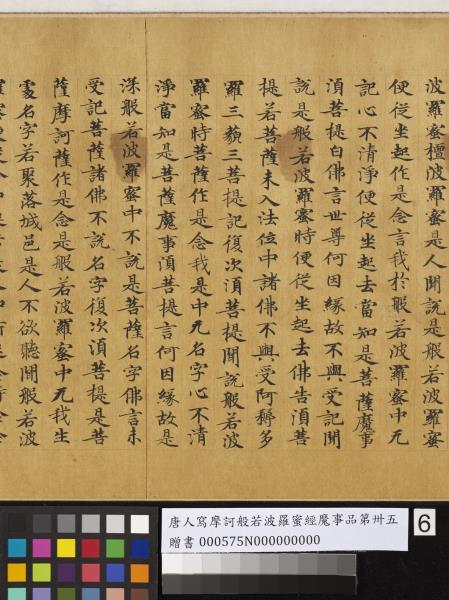 波羅蜜檀波羅蜜是人聞說是般若波羅蜜
便從坐起作是念言我於般若波羅蜜中无
記心不清淨便從坐起去當知是菩薩魔事
須菩提白佛言世尊何因緣故不與受記聞
說是般若波羅蜜時便從坐起去佛告須菩
提若菩薩未入法位中諸佛不與受阿耨多
羅三藐三菩提記復次須菩提聞說般若波
羅蜜時菩薩作是念我是中无名字心不清
淨當知是菩薩魔事須菩提言何因緣故是
深般若波羅蜜中不說是菩薩名字佛言未
受記菩薩諸佛不說名字復次須菩提是菩
薩摩訶薩作是念是般若波羅蜜中无我生
處名字若聚落城邑是人不欲聽聞般若波
唐人寫摩訶般若波羅蜜經魔事品第卅五
贈書 000575N000000000
6